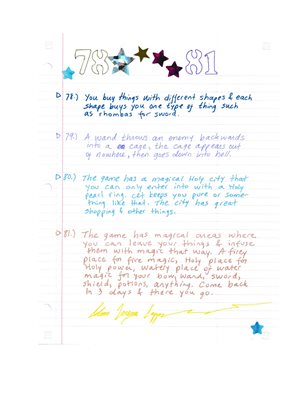 78 81
78.) You buy things with different shapes & each
shape buys you one type of thing such
as rhombas for sword.
79.) A wand throws an enemy backwards
into a cage, the cage appears out
of nowhere, then goes down into hell.
80.) The game has a magical Holy city that
you can only enter into with a Holy
pearl ring. It keeps you pure or some-
thing like that. The city has great
shopping & other things.
81.) The game has magical areas where
you can leave your things & infuse
them with magic that way. A firey
place for fire magic, Holy place for
Holy power, wately place of water
magic for your bow, wand, sword,
shield, potions, anything. Come back
in 3 days & there you go.